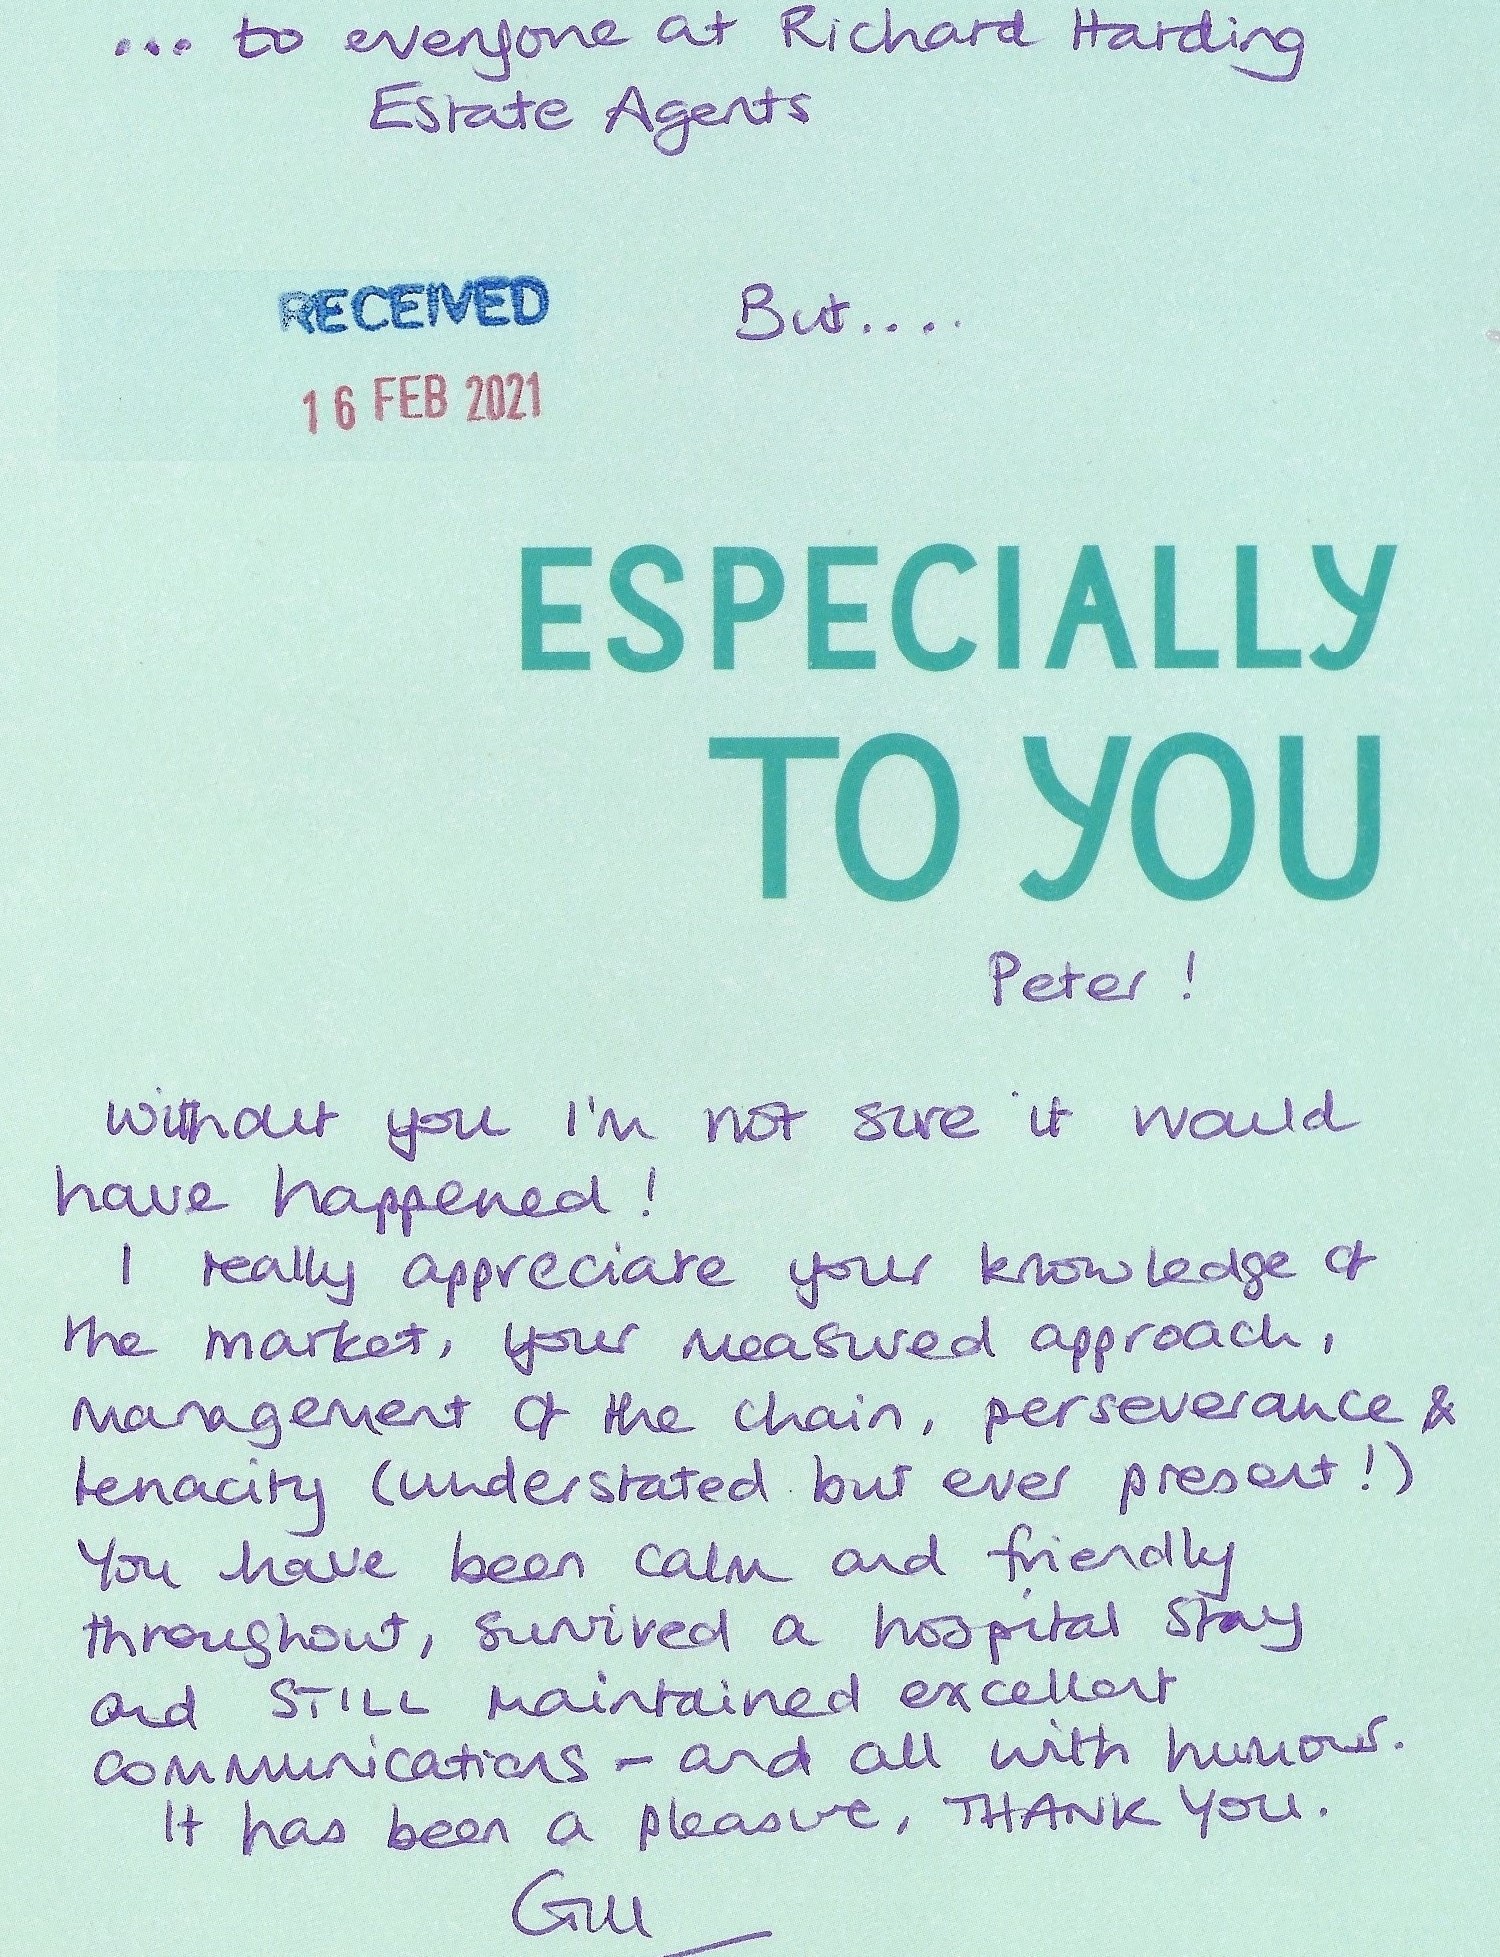 ... to everyone at Richard Harding
Estate Agents
RECEIVED
But....
16 FEB 2021
ESPECIALLY
TO YOU
Peter !
without you I'm not sure it would
have happened !
I really appreciate your knowledge of
the market, your measured approach,
management of the chain, perseverance &
tenacity (understated but ever present!)
You have been calm and friendly
throughout, survived a hospital stay
and STILL maintained excellent
communications - and all with humour.
It has been a pleasure, THANK YOU.
Gill